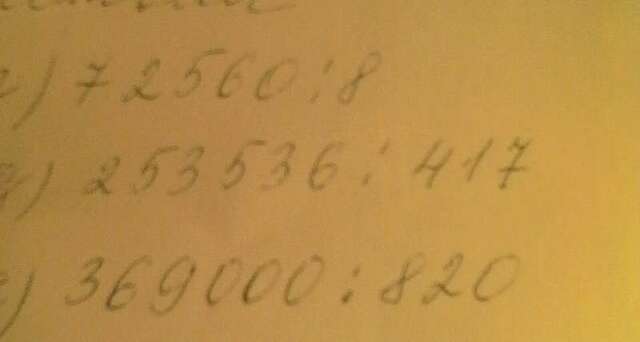 г) 72560:8
д) 253536:417
е) 369000:820